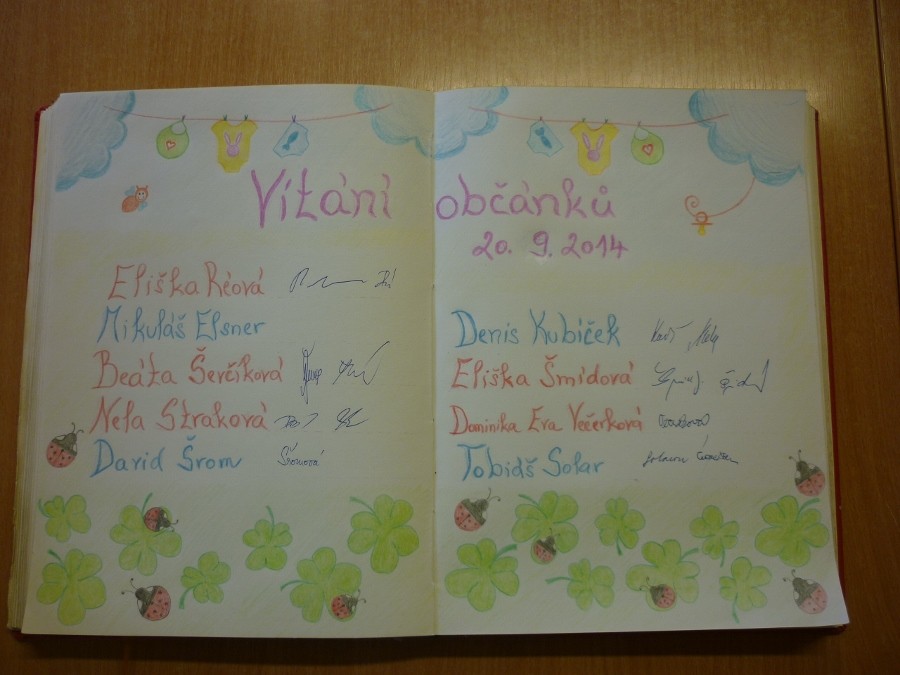 Vítání občánků
20. 9. 2014
Eliška Réová
Mikuláš Elsner
Beáta Ševčíková
Nela Straková
David Šrom
Šromová
Denis Kubíček
Eliška Šmídová
Dominika Eva Večerková
Tobiáš Solar